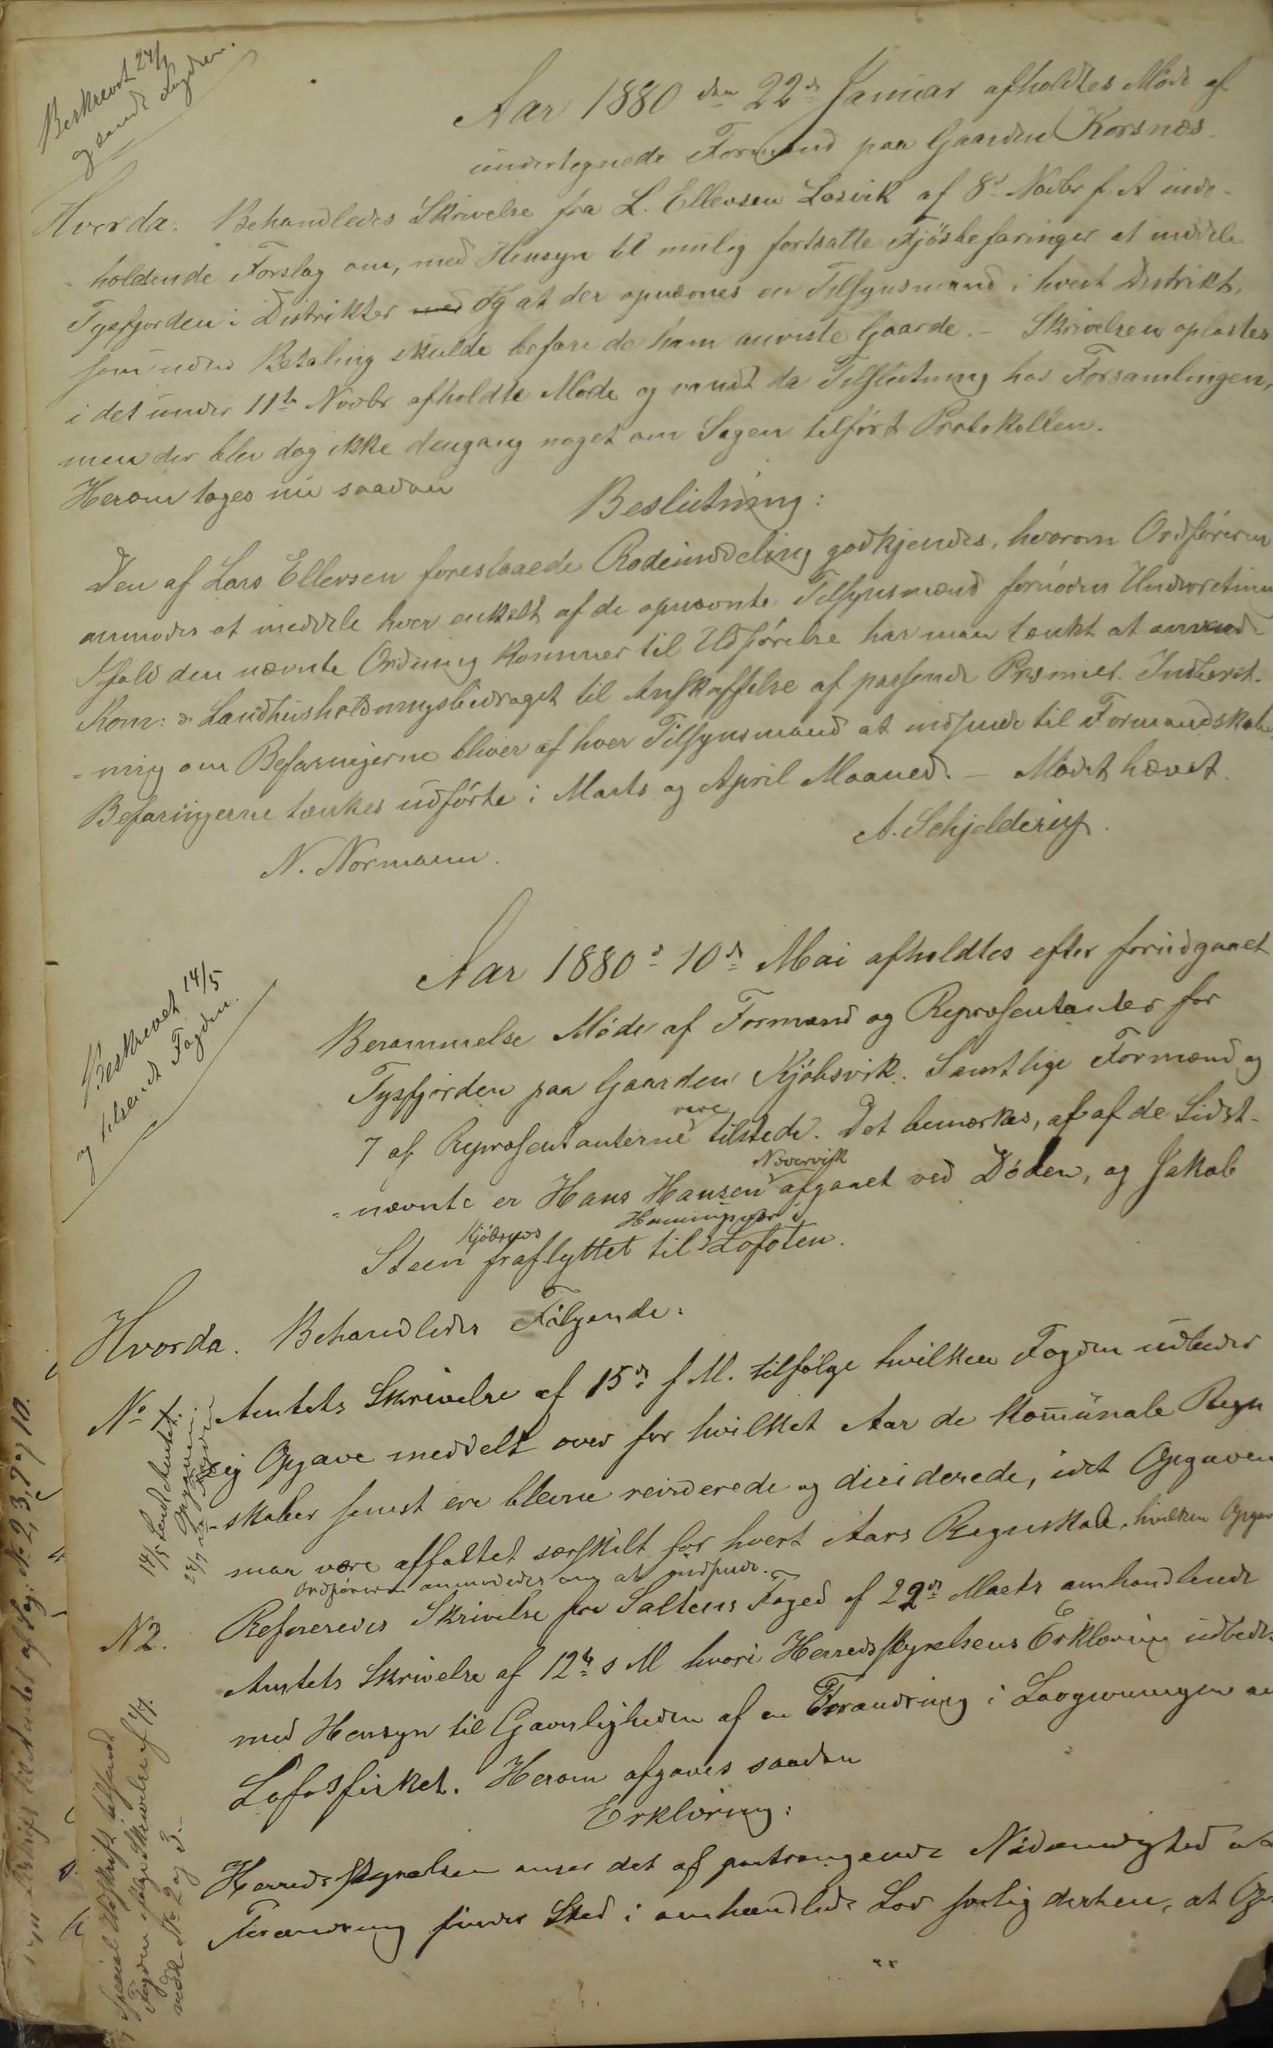 Beskrevet 24/1
og sendt Fogden.
Aar 1880 den 22de Januar afholdtes Møde af
undertegnede Formænd paa Gaarden Korsnæs.
Hvorda: Behandledes Skrivelse fra L. Ellevsen Losvik af 8de Novbr f. A inde-
-holdende Forslag om, med Hensyn til mulig fortsatte Fjøsbefaringer at inddele
Tysfjorden i Distrikter med og at der opnævnes en Tilsynsmand i hvert Distrikt,
som uden Betaling skulde befare de ham anviste Gaarde. – Skrivelsen oplæstes
i det under 11te Novbr afholdte Møde og vandt da Tilslutning hos Forsamlingen,
men der blev dog ikke dengang noget om Sagen tilført Protokollen.
Herom toges nu saadan
Beslutning:
Den af Lars Ellevsen foreslaaede Rodeinddeling godkjendes, hvorom Ordføreren
anmodes at meddele hver enkelt af de opnævnte Tilsynsmænd fornøden Underretning
Ifald den nævnte Ordning kommer til Udførelse har man tænkt at anvende
Kom: & Landhusholdningsbidraget til Anskaffelse af passende Præmier. Indberet-
-ning om Befaringerne bliver af hver Tilsynsmand at indsende til Formandskabet,
Befaringerne tænkes udførte i Marts og April Maaned. – Mødet hævet.
A. Schjelderup.
N. Normann.
Beskrevet 14/5
og tilsendt Fogden.
Aar 1880 d. 10de Mai afholdtes efter foriudgaaet
Berammelse Møde af Formænd og Repræsentanter for
Tysfjorden paa Gaarden Kjøbsvik. Samtlige Formænd og
7 af Repræsentanterne vare tilstede. Det bemærkes, at af de Sidst-
-nævnte er Hans Hansen Noervik afgaaet ved Døden, og Jakob
Steen Kjøbsnes fraflyttet til Henningsvær i Lofoten.
Hvorda. Behandledes Følgende:
No 1. Amtets Skrivelse af 15de f. M. tilfølge hvilken Fogden udbeder
sig Opgave meddelt over for hvilket Aar de kommunale Regn
-skaber senest ere blevne reviderede og deciderede, idet Opgaven
maa være affattet særskilt for hvert Aars Regnskab, hvilken Opgave
Ordføreren anmodedes om at indsende.
14/5 sendt Amtet.
N 2. Refereredes Skrivelse fra Saltens Foged af 22de Marts omhandlende
Amtets Skrivelse af 12te s M hvori Herredsstyrelsens Erklæring udbedes
med Hensyn til Gavnligheden af en Forandring i Lovgivningen om
Lofotfisket. Herom afgaves saadan
Erklæring:
Herredsstyrelsen anser det af paatrængende Nødvendighed at
Forandring finder Sted i omhandlede Lov særlig derhen, at
Special Udskrift tilsendt
Fogden ifølge Skrivelse af 1/7.
No 2 og 3.
Udskrift til Amtet af Sag: No 2, 3, 7 og 10.